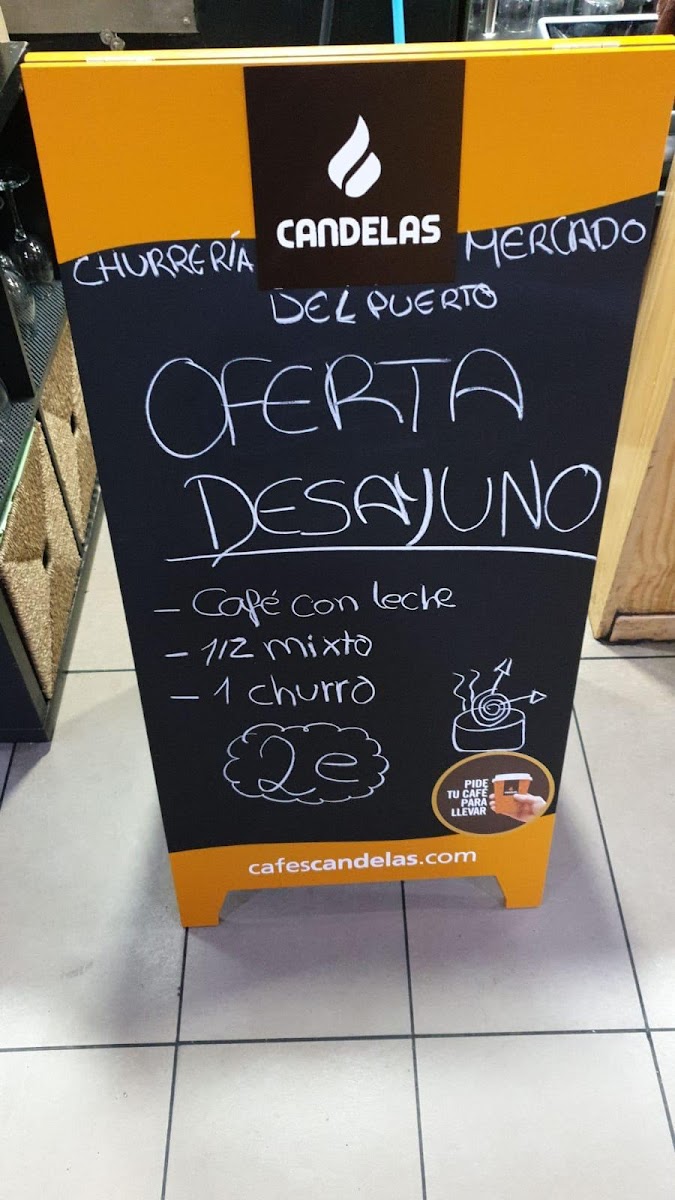 CANDELAS
CHURRERÍA MERCADO
DEL PUERTO
OFERTA
DESAYUNO
- Café con leche
- 1/2 mixto
- 1 churro
2e
PIDE
TU CAFÉ
PARA
LLEVAR
cafescandelas.com